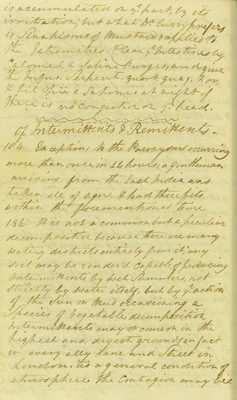 is accumulated on ye part, by its
irritation; but what Dr Curry prefers
is Sinapisms of Mustard applied to
the Extremities. Clear ye Intestines by
Calomel & Saline Purges, and give
the
& at night if
there is no congestion on ye head.
Of Intermittents & Remittents.
184. Exceptions to the Paroxysms occurring
more than once in 24 hours, a gentleman
arriving from the East Indies was
taken ill of ague & had three fits
within the
186. It is not a common but a peculiar
decomposition because there are many
watery districts entirely free of any
soil may be rendered capable of producing
Intermittents by wet Summers not
strictly by water itself but by ye action
of the Sun on Mud occasioning a
species of Vegetable decomposition
Intermittents may occur even in the
highest and dryest grounds, in fact
in every ally lane and street in
London. its a general condition of
atmosphere. The Contagion may lie